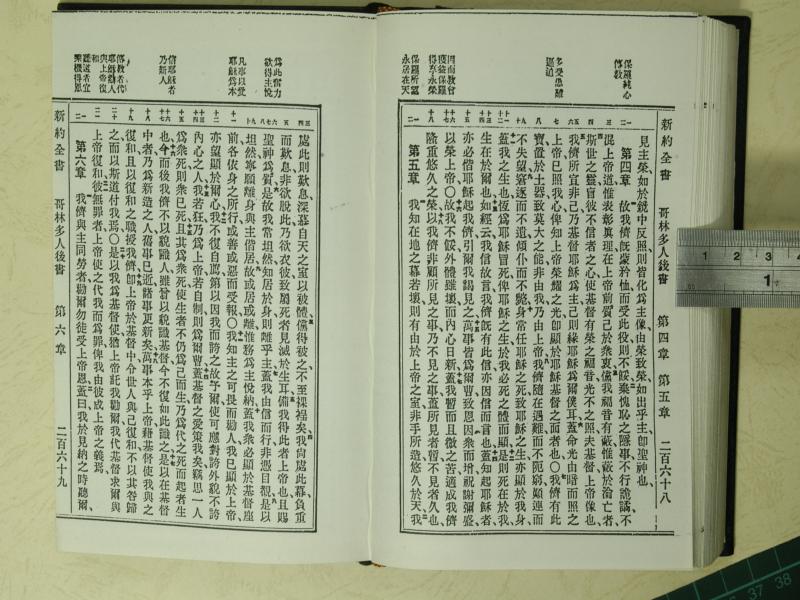 新約全書 哥林多人後書 第四章 第五章 二百六十八
保羅純心傳教
多受患難逼迫
因而教會獲益保羅得享永榮
保羅所望永居在天
見主榮如於鏡中反照則皆化爲主像由榮致榮如出乎主卽聖神也
第四章 故我儕旣蒙矜恤而受此役則不餒棄愧恥之隱事不行詭譎不
混上帝道惟表彰眞理在上帝前質己於衆衷儻我福音有蔽惟蔽於淪亡者
斯世之神盲彼不信者之心使基督有榮之福音光不之照夫基督上帝像也
我儕所宣非己乃基督耶穌爲主己則緣耶穌爲爾僕耳蓋命光由暗而照之
上帝已照我心俾知上帝榮耀之光卽顯於耶穌基督之面者也〇我儕有此
寶置於土器致莫大之能非由我乃由上帝我儕隨在遇難而不阨窮顯連而
不失望窘逐而不遺傾仆而不斃身常任耶穌之死致耶穌之生亦顯於我身
蓋我之生也恆爲耶穌冒死俾耶穌之生於我必死之體而顯是則死在於我
生在於爾也如經云我信故言我儕旣有此信亦因信而言也蓋知起耶穌者
亦必偕耶穌起我儕引爾我謁見之萬事皆爲爾曹致恩因衆而增祝謝彌盛
以榮上帝〇故我不餒外體雖壞而內心日新蓋我暫而且微之苦適成我儕
隆重悠久之榮以我儕非顧所見之事乃不見之事蓋所見者暫不見者久也
第五章 我知在地之幕若壞則有由於上帝之室非手所造悠久於天我
新約全書 哥林多人後書 第六章 二百六十九
爲此奮力欲得主悅
凡事以愛耶穌爲本
信耶穌者乃新人
傳教者代耶穌勸人與上帝復和
處此則歎息深慕自天之室以被體儻得被之不至裸裎矣我尙處此幕負重
而歎息非欲脫此乃欲衣彼致屬死者見滅於生耳備我得此者上帝也且賜
聖神爲質是故我常坦然知居於身則離乎主蓋我由信而行非憑目覩是以
坦然寧願離身與主偕居故或居或離惟務爲主悅納蓋我衆必顯於基督座
前各依身之所行或善或惡而受報〇我知主之可畏而勸人我已顯於上帝
亦望顯於爾心我不復自薦第以因我而誇之故予爾使可應對誇外貌不誇
內心之人我若狂乃爲上帝若自制則爲爾曹蓋基督之愛策我矣竊思一人
爲衆死則衆已死且其爲衆死使生者不仍爲己而生乃爲代之死而起者生
也今而後我儕不以貌識人雖曾以貌識基督今不復如此識之是以在基督
中者乃爲新造之人舊事已逝諸事更新矣萬事本乎上帝藉基督使我與之
復和且以復和之職授我儕卽上帝於基督中令世人與己復和不以其咎歸
之而以斯道付我焉〇是以我爲基督使猶上帝託我勸爾我代基督求爾與
上帝復和彼無罪者上帝使之代我而爲罪俾我由彼成上帝之義焉
第六章 我儕與主同勞者勸爾勿徒受上帝恩蓋曰我於見納之時聽爾